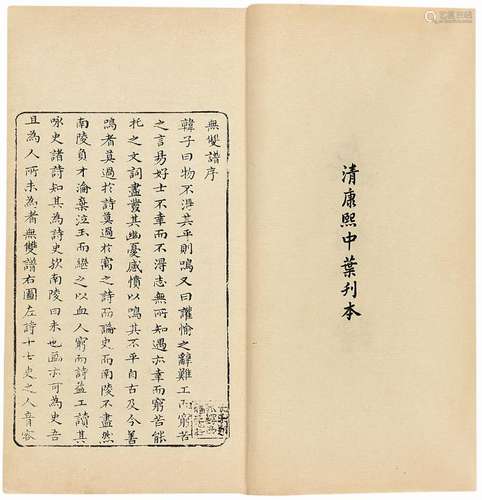 清康熙中葉刊本
無雙譜序
韓子曰物不得其平則鳴又曰讙愉之辭難工而窮苦
之言易好士不幸而不得志無所知遇亦幸而窮苦能
托之文詞盡發其幽憂感憤以鳴其不平自古及今善
鳴者莫過於詩莫過於寓之詩而論史而南陵不盡然
南陵負才淪棄泣玉而繼之以血人窮而詩益工讀其
咏史諸詩知其為詩史欤南陵曰未也茲亦可為史吾
且為人所未為者無雙譜右圖左詩十七史之人音容